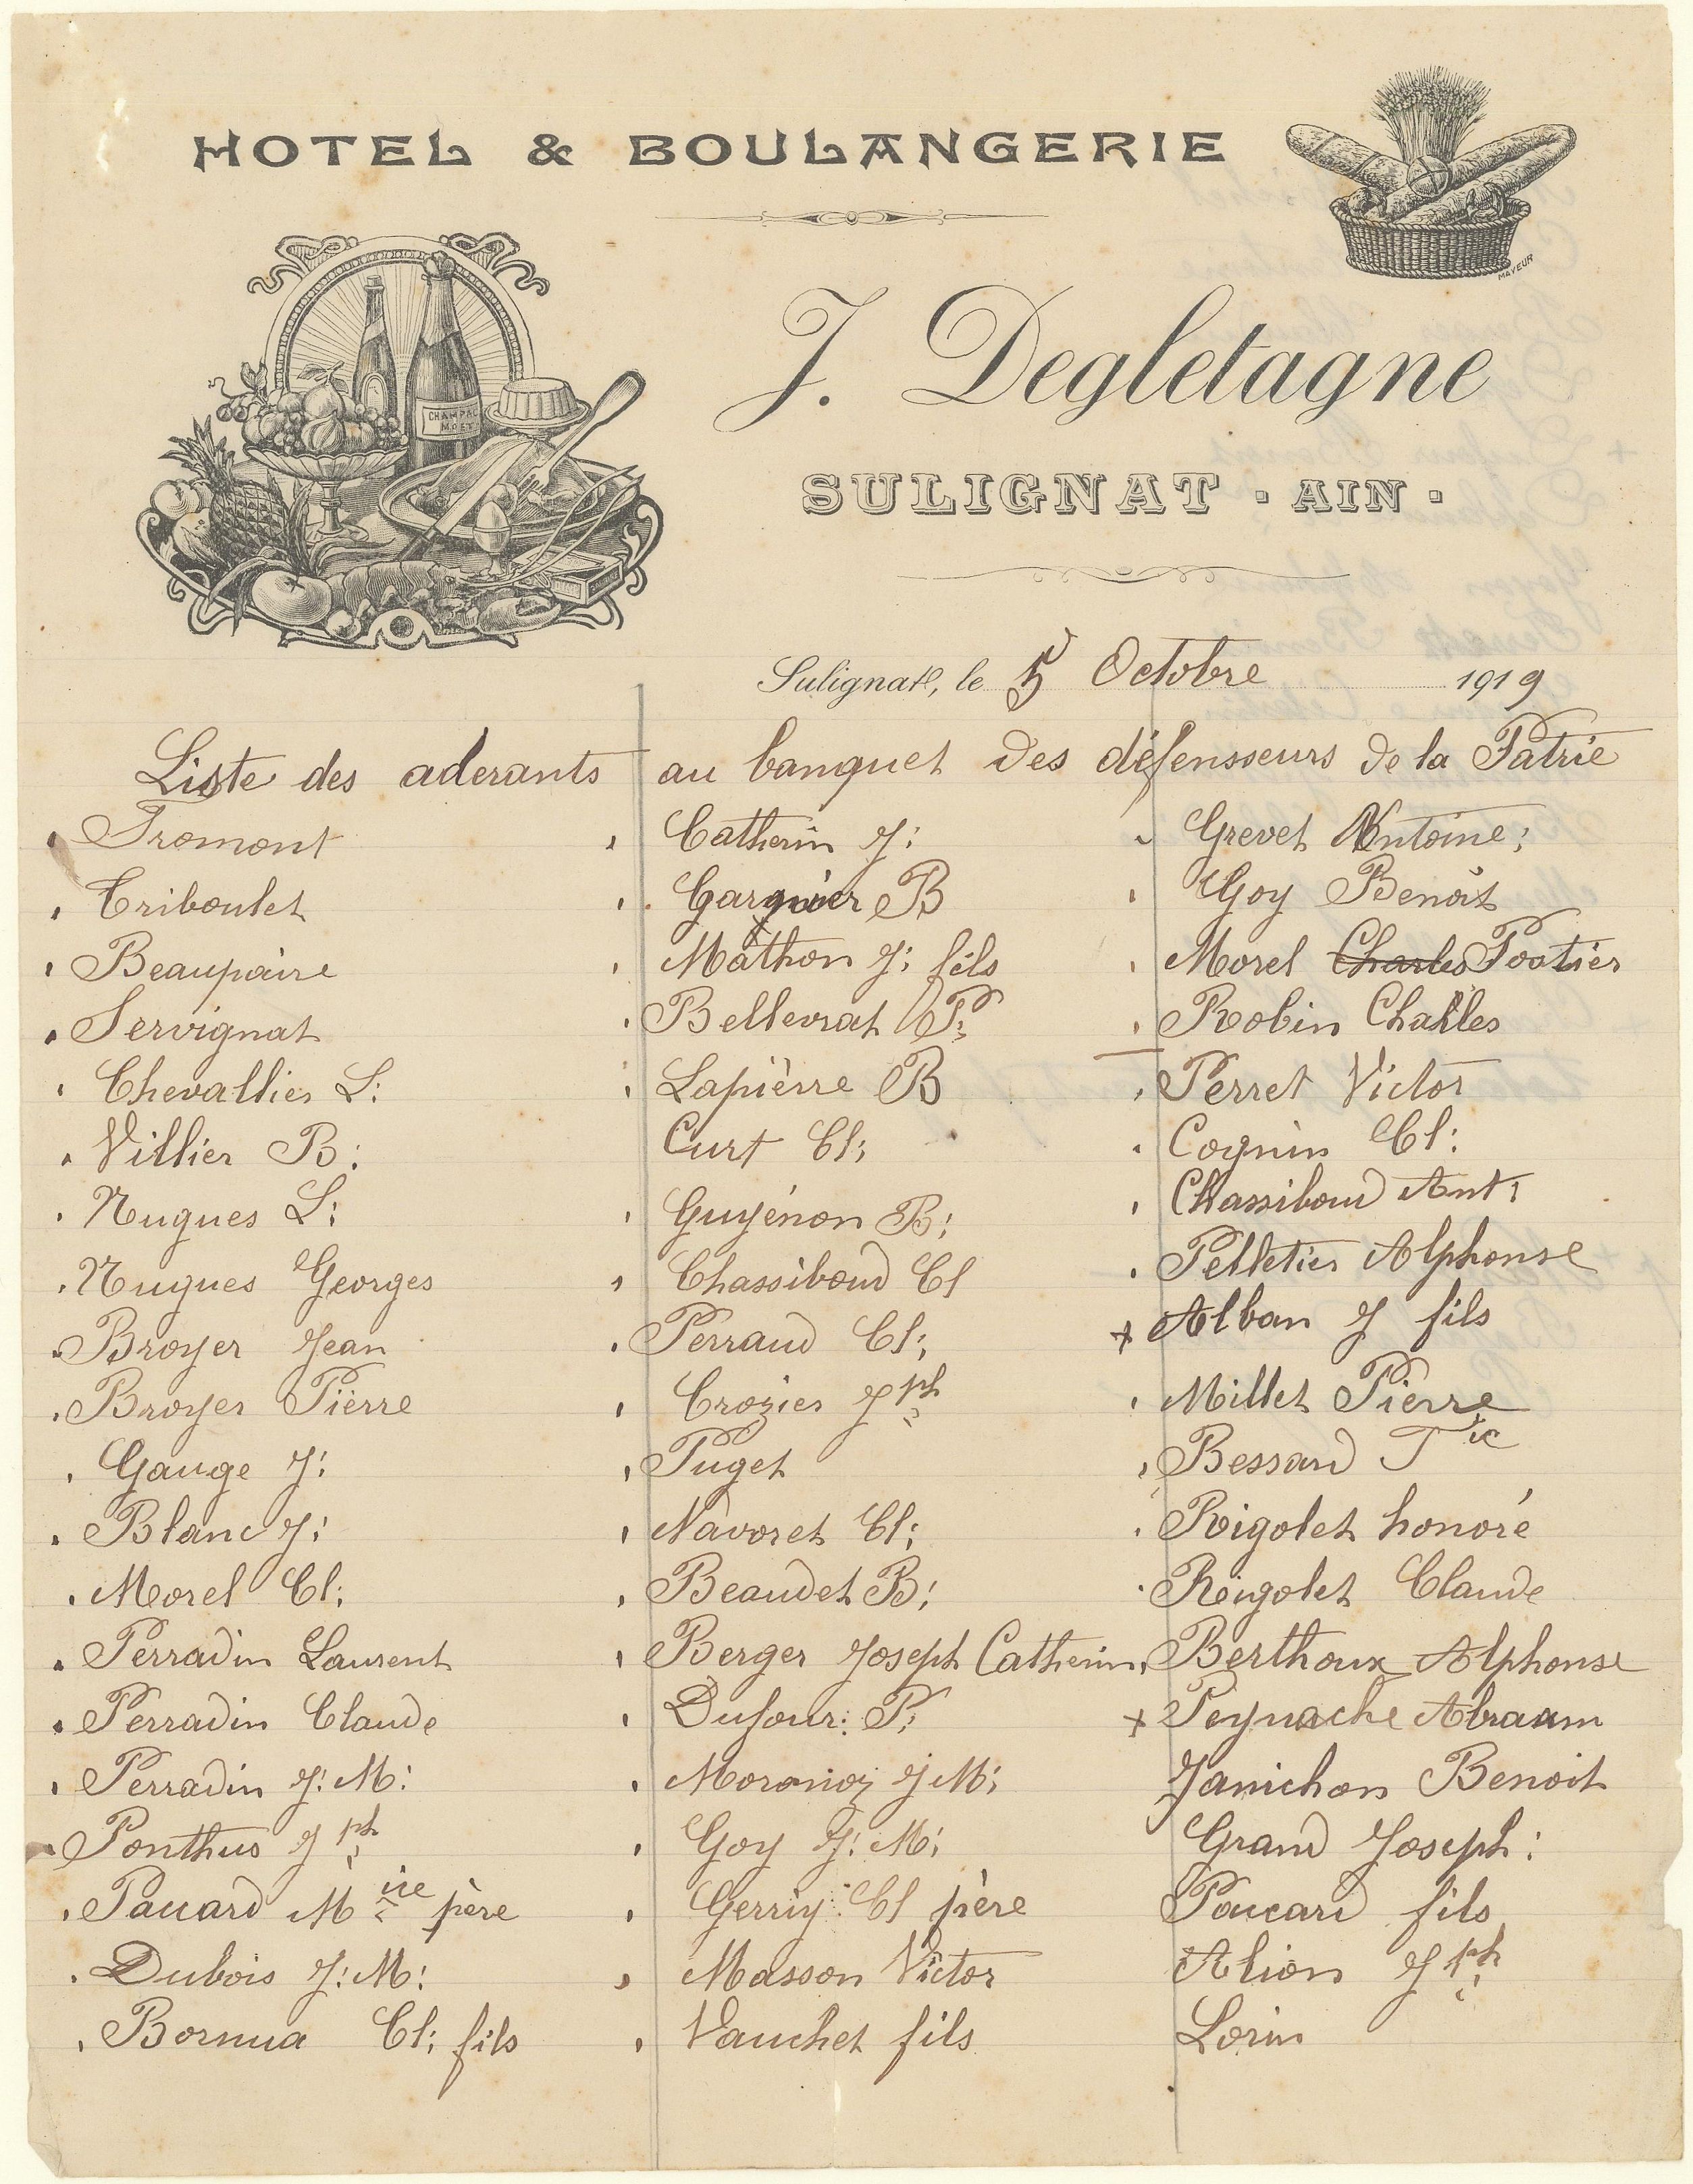 HOTEL & BOULANGERIE
MAYEUR
CHAMPAG
MOET
J. Degletagne
SULIGNAT · AIN ·
Sulignat, le 5 Octobre 1919
Liste des aderants au banquet des défensseurs de la Patrie
Fromont
Triboulet
Beaupaire
Servignat
Chevallier L:
Villier B:
Nugues L:
Nugues Georges
Broyer Jean
Broyer Pierre
Gauge J:
Blanc J:
Morel Cl:
Perradin Laurent
Perradin Claude
Perradin J: M:
Ponthus Jph
Pauard M père
Dubois J: M:
Bornua Cl: fils
Catherin J:
B
Mathon J: fils
Bellevrat P:
Lapièrre B
Curt Cl:
Guyénon B:
Chassiboud Cl
Perraud Cl:
Crozier Jph
Puget
Navoret Cl:
Beaudet B:
Berger Joseph Catherin
Dufour: P:
J M:
Goy J: M:
Cl père
Masson Victor
Vauchet fils
Grevet Antoine:
Goy Benoit
Morel Charles Postier
Robin Challes
Perret Victor
Cognin Cl:
Chassiboud Ant:
Pelletier Alphonse
+ Alban J fils
Millet Pierre
Bessard
Rigolet honoré
Rigolet Claude
Berthoux Alphonse
+ Peynache Abraam
Janichon Benoit
Grand Joseph:
fils
Alion Jph
Lorin